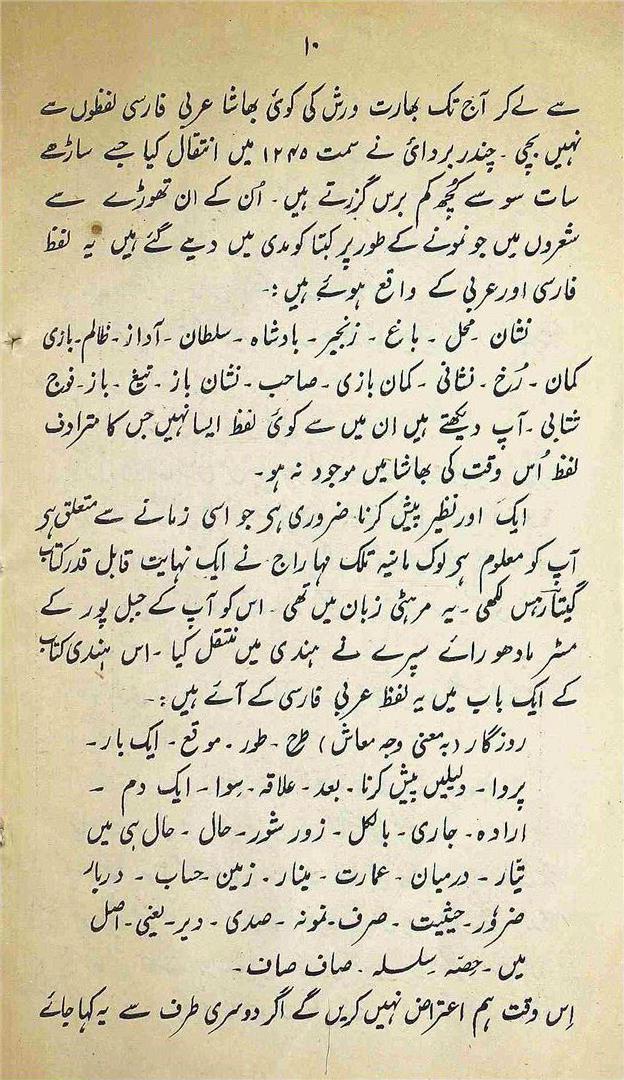 ۱۰
سے لے کر آج تک بھارت ورش کی کوئی بھاشا عربی فارسی لفظوں سے
نہیں بچی ۔ چندر بردائی نے سمت ۱۲۴۵ میں انتقال کیا جسے ساڑھے
سات سو سے کُچھ کم برس گزرتے ہیں ۔ اُن کے ان تھوڑے سے
شعروں میں جو نمونے کے طور پر کبتا کومدی میں دیے گئے ہیں یہ لفظ
فارسی اور عربی کے واقع ہوئے ہیں :۔
نشان ۔ محل ۔ باغ ۔ زنجیر ۔ بادشاہ ۔ سلطان ۔ آداز ۔ ظالم ۔ بازی
کمان ۔ رُخ ۔ نشانی ۔ کمان بازی ۔ صاحب ۔ نشان باز ۔ تیغ ۔ باز ۔ فوج
شتابی ۔ آپ دیکھتے ہیں ان میں سے کوئی لفظ ایسا نہیں جس کا مترادف
لفظ اُس وقت کی بھاشا میں موجود نہ ہو ۔
ایک اور نظیر پیش کرنا ضروری ہی جو اسی زمانے سے متعلق ہی
آپ کو معلوم ہی لوک مانیہ تلک مہاراج نے ایک نہایت قابل قدر کتاب
گیتا رہس لکھی ۔ یہ مرہٹی زبان میں تھی ۔ اس کو آپ کے جبل پور کے
مسٹر مادھو رائے سپرے نے ہندی میں منتقل کیا ۔ اس ہندی کتاب
کے ایک باب میں یہ لفظ عربی فارسی کے آئے ہیں :۔
روزگار (بہ معنی وجہ معاش) طرح ۔ طور ۔ موقع ۔ ایک بار ۔
پروا ۔ دلیلیں پیش کرنا ۔ بعد ۔ علاقہ ۔ سِوا ۔ ایک دم ۔
ارادہ ۔ جاری ۔ بالکل ۔ زور شور ۔ حال ۔ حال ہی میں
تیّار ۔ درمیان ۔ عمارت ۔ مینار ۔ زمین ۔ حساب ۔ دربار
ضرُور ۔ حیثیت ۔ صرف ۔ نمونہ ۔ صدی ۔ دیر ۔ یعنی ۔ اصل
میں ۔ حِصّہ ۔ سِلسلہ ۔ صاف صاف ۔
اِس وقت ہم اعتراض نہیں کریں گے اگر دوسری طرف سے یہ کہا جائے